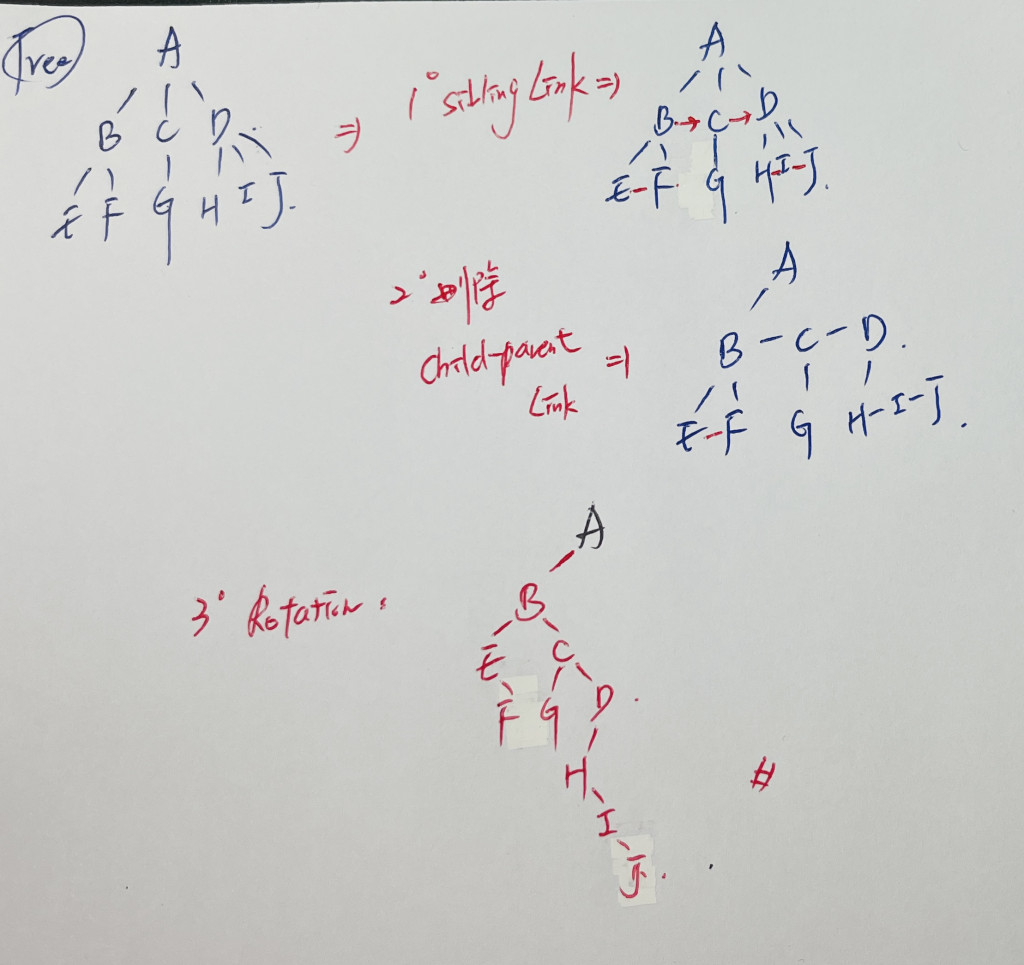 Tree
A
B C D
E F G H I J.
⇒ 1° sibling Link ⇒
A
B → C → D
E - F G H - I - J.
2° 刪除
child-parent
Link ⇒
A
B - C - D.
E - F G H - I - J.
3° Rotation:
A
B
E C
F G D.
H
I
J.
#